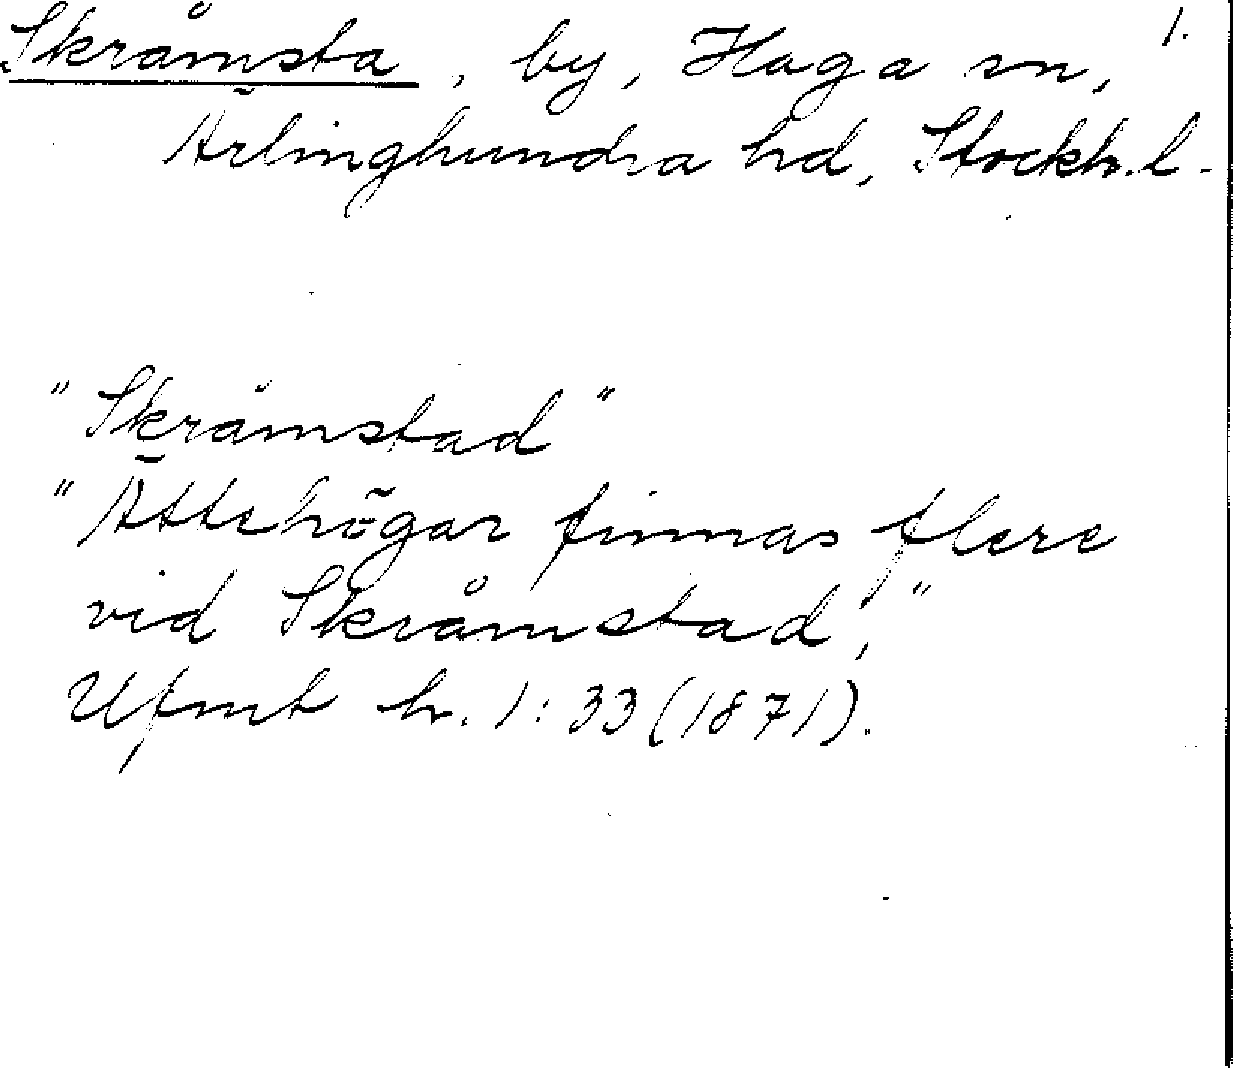 Skråmsta, by, Haga sn, 1.
Ärlinghundra hd, Stockh. l.
"Skråmstad"
"Ättehögar finnas flere
vid Skråmstad,"
Ufmt h. 1: 33 (1871).